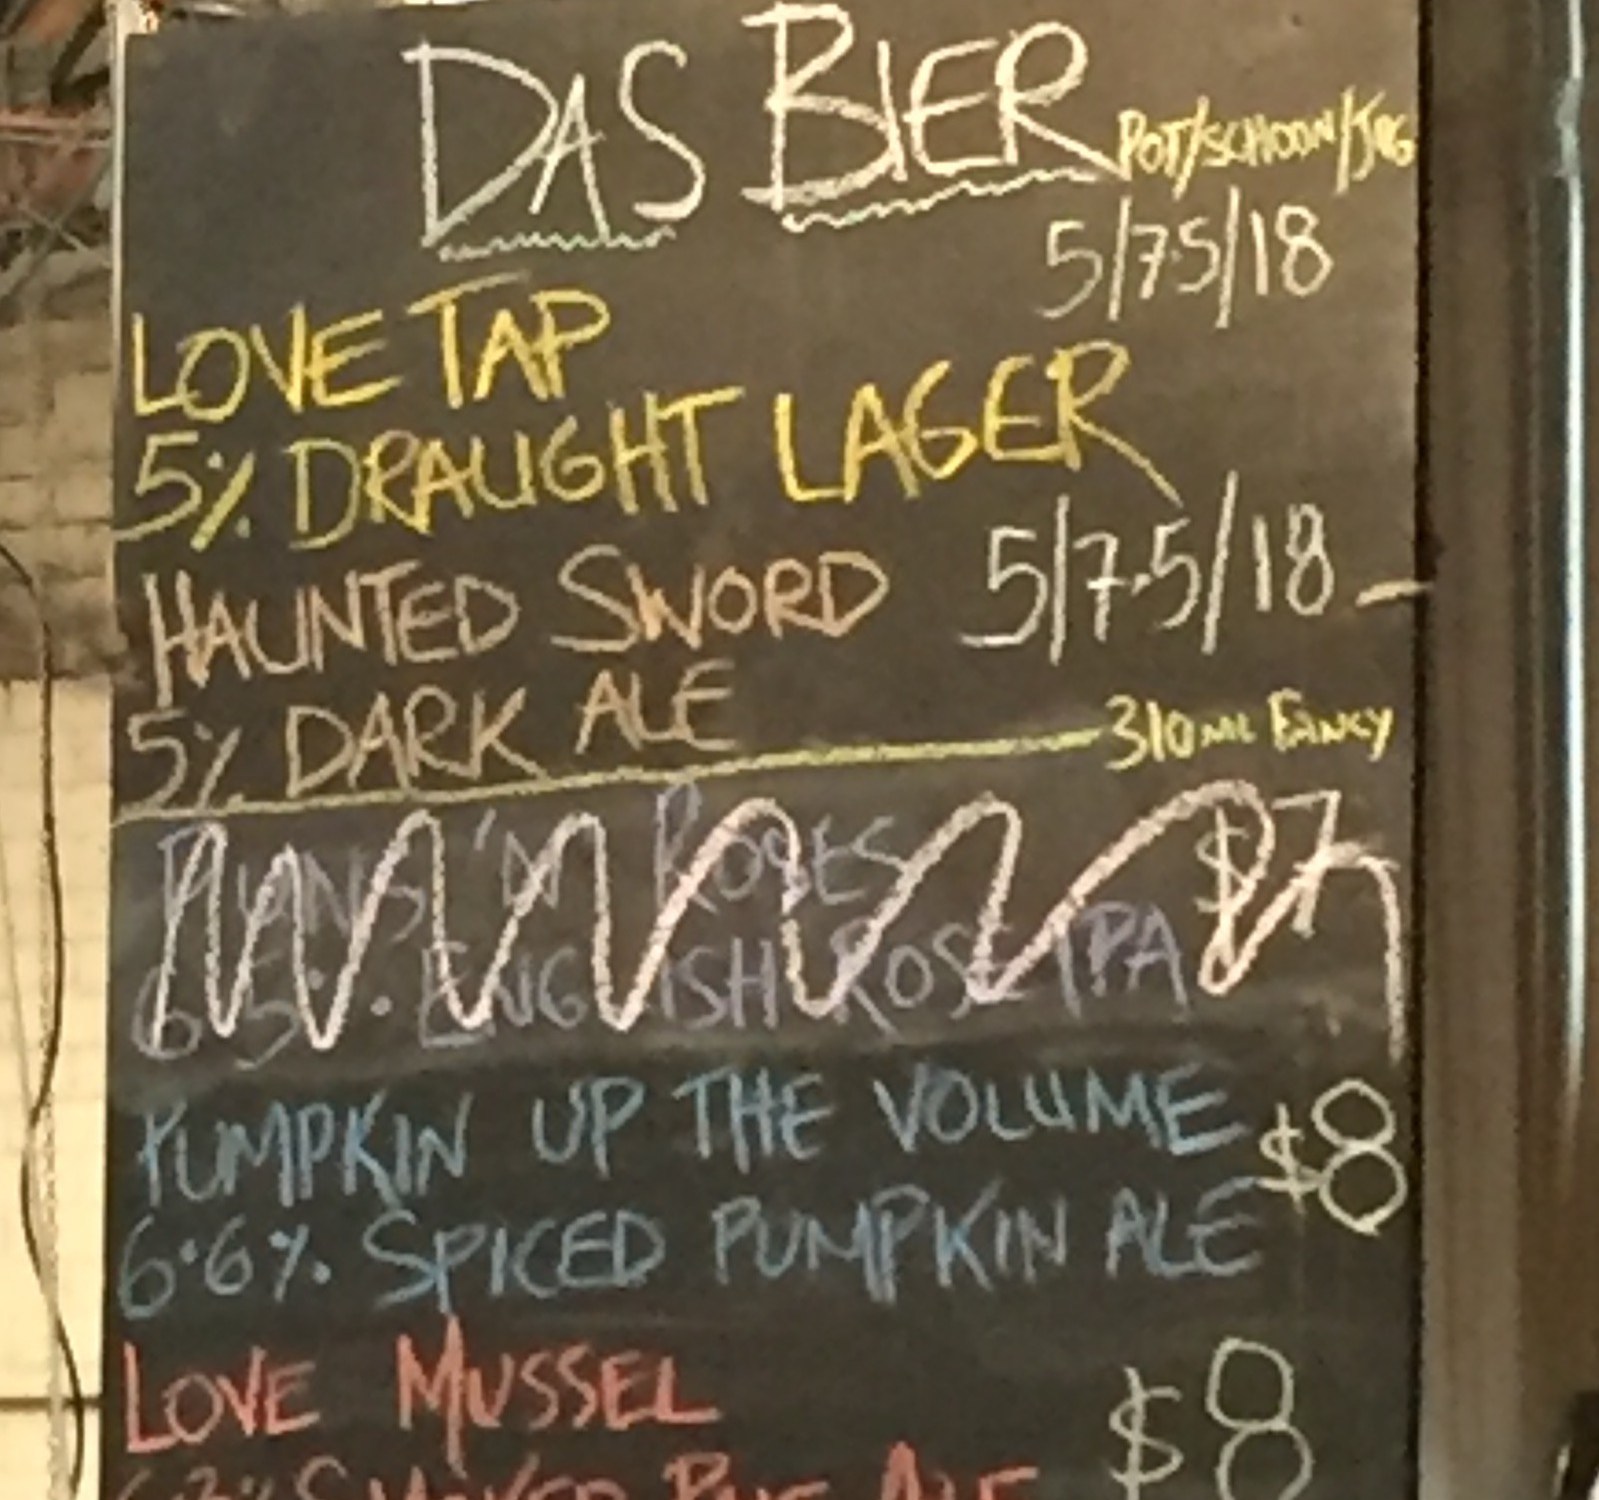 DAS BIER
POT/SCHOON/JUG
5/7.5/18
LOVE TAP
5% DRAUGHT LAGER
HAUNTED SWORD 5/7.5/18
5% DARK ALE
310ML FANCY
'N ROSES $7
ENGLISH ROSE IPA
PUMPKIN UP THE VOLUME $8
6.6% SPICED PUMPKIN ALE
LOVE MUSSEL $8
ALE